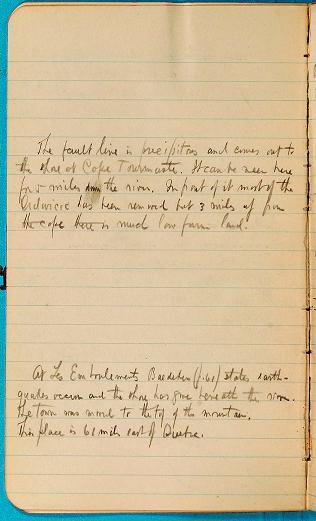 The fault line is precipitous and comes out to
the shore at Cape Tourmente. It can be seen here
for 5 miles down the river. In front of it most of the
Ordivicic has been removed but 3 miles up from
the cape there is much low farm land.
At Les Emboulements Baedeker (p.61) states earth-
quakes occur and the shore has gone beneath the river.
The town was moved to the top of the mountain.
This place is 61 miles east of Quebec.